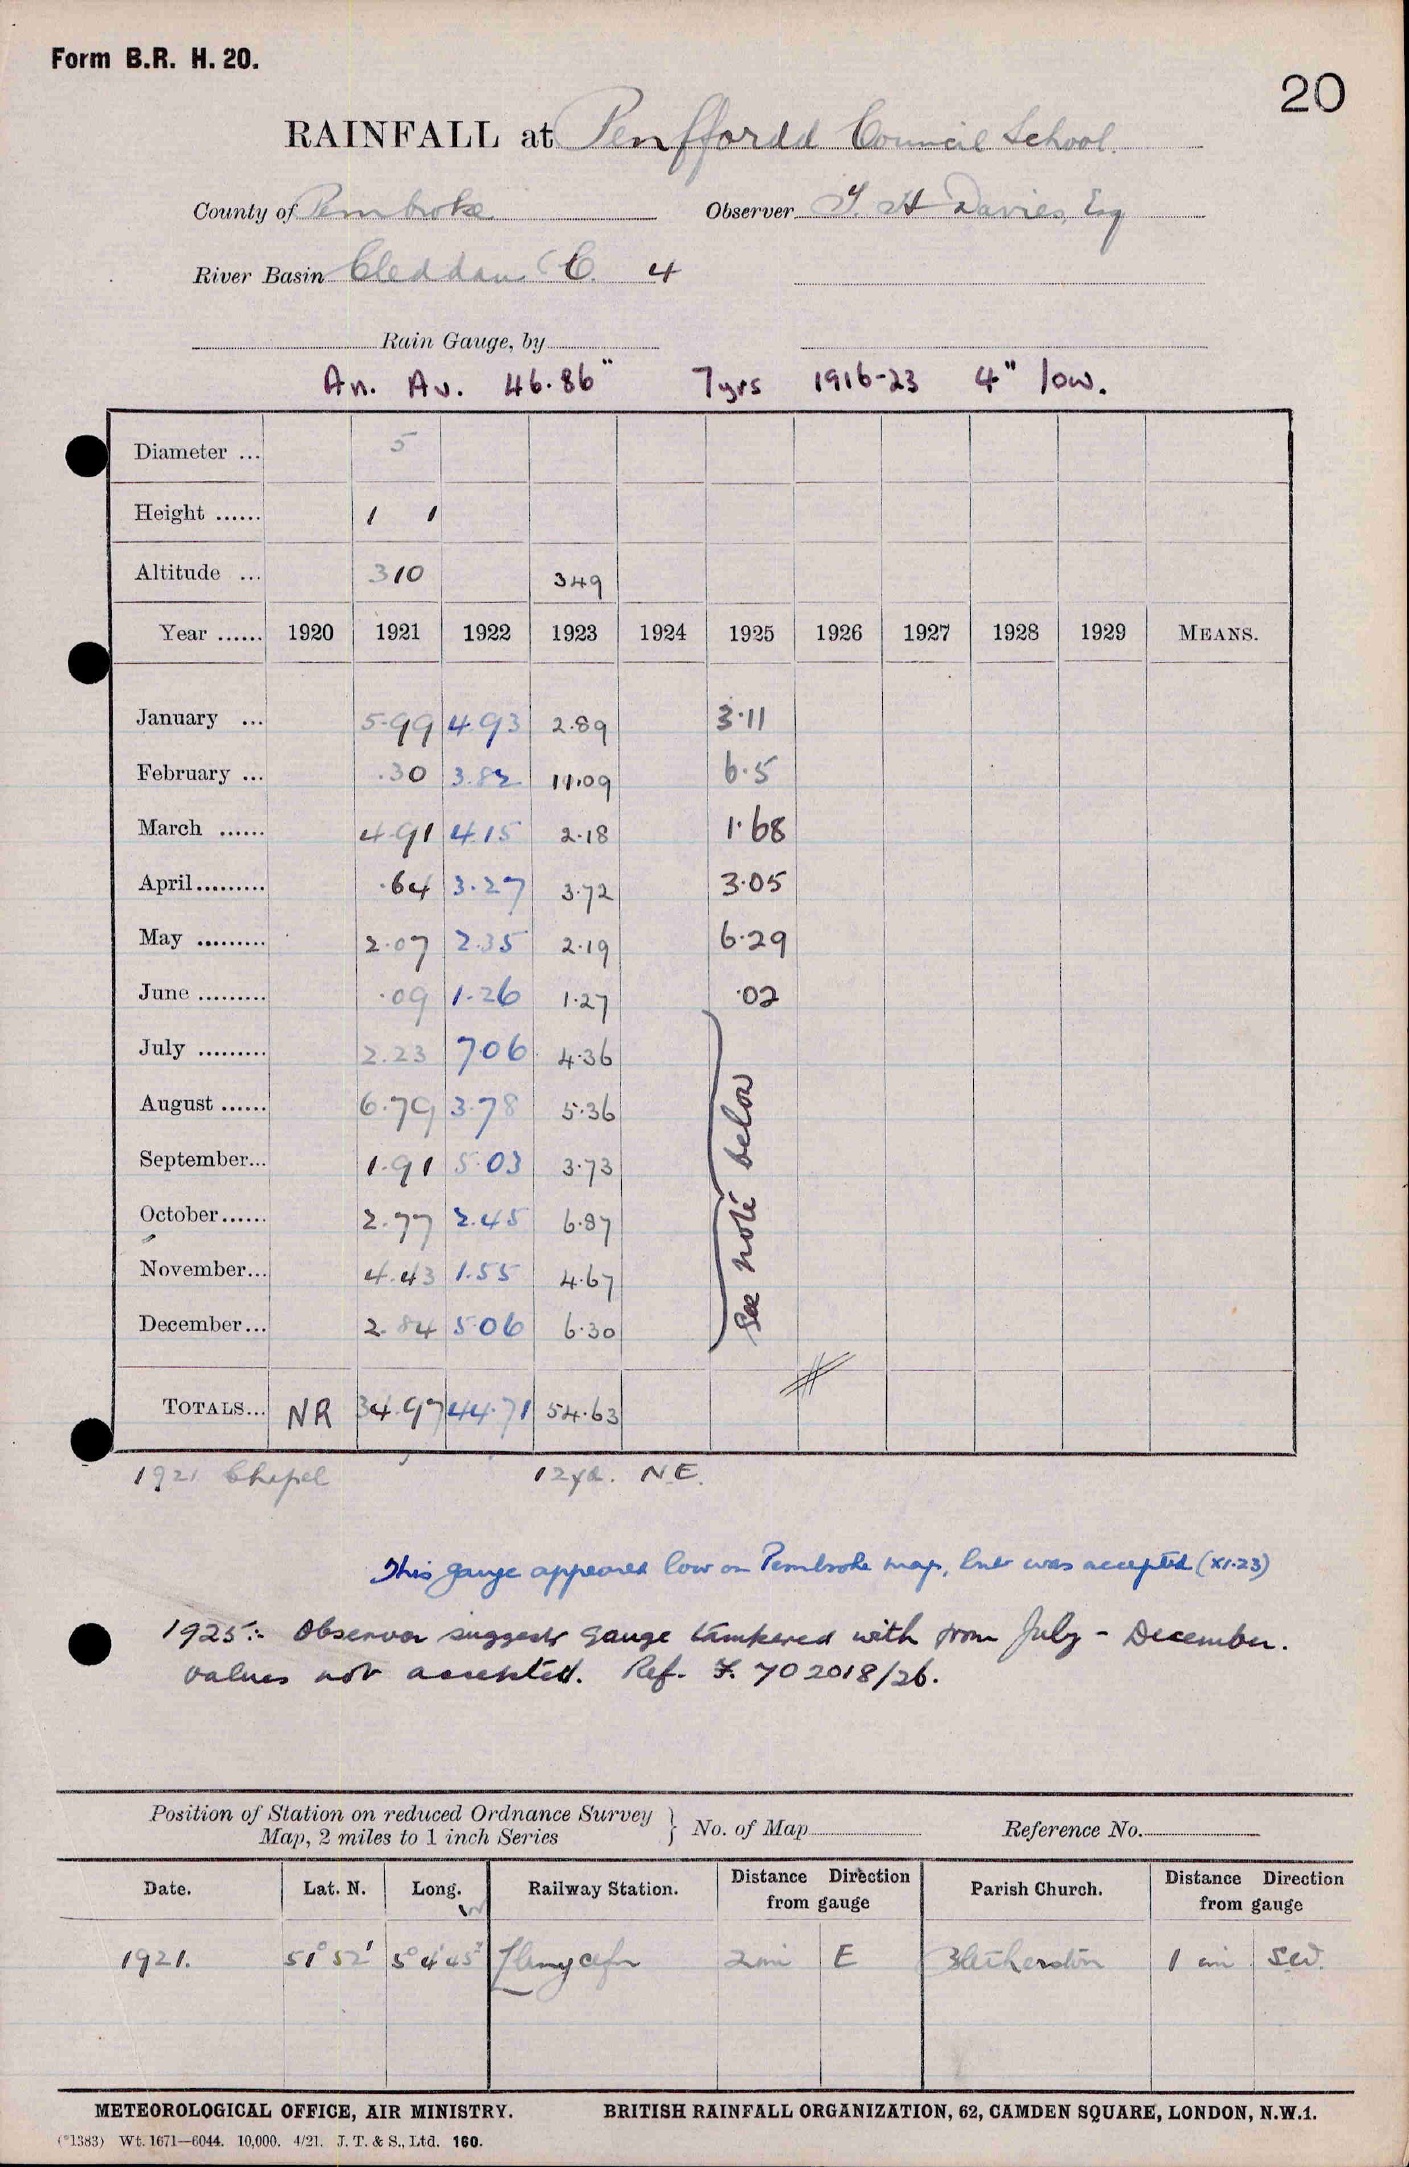 Form B.R. H. 20.
20
RAINFALL at Penffordd Council School.
County of Pembroke Observer T. H Davies, Esq
River Basin Cleddau (C. 4
Rain Gauge, by
An. Av. 46.86" 7yrs 1916-23 4" low.
Diameter ... 5
Height ...... 1 1
Altitude ... 310 349
Year ...... 1920 1921 1922 1923 1924 1925 1926 1927 1928 1929 MEANS.
January ... 5.99 4.93 2.89 3.11
February ... .30 3.82 11.09 6.5
March ...... 4.91 4.15 2.18 1.68
April......... .64 3.27 3.72 3.05
May ......... 2.07 2.35 2.19 6.29
June ......... .09 1.26 1.27 .02
July ......... 2.23 7.06 4.36
August ...... 6.79 3.78 5.36
September... 1.91 5.03 3.73
October...... 2.77 2.45 6.87
November... 4.43 1.55 4.67
December... 2.84 5.06 6.30
See note below
TOTALS... NR 34.97 44.71 54.63
1921 Chapel 12yd. N.E.
This gauge appeared low on Pembroke map, but was accepted (XI.23)
1925:- Observer suggests gauge tampered with from July - December.
Values not accepted. Ref. F. 702018/26.
Position of Station on reduced Ordnance Survey
Map, 2 miles to 1 inch Series } No. of Map Reference No.
Date. Lat. N. Long. W Railway Station. Distance Direction from gauge Parish Church. Distance Direction from gauge
1921. 51° 52' 5° 4' 45" Llanycefn 2 mi E Bletherston 1 mi S.W.
METEOROLOGICAL OFFICE, AIR MINISTRY. BRITISH RAINFALL ORGANIZATION, 62, CAMDEN SQUARE, LONDON, N.W.1.
(*1383) Wt. 1671—6044. 10,000. 4/21. J. T. & S., Ltd. 160.